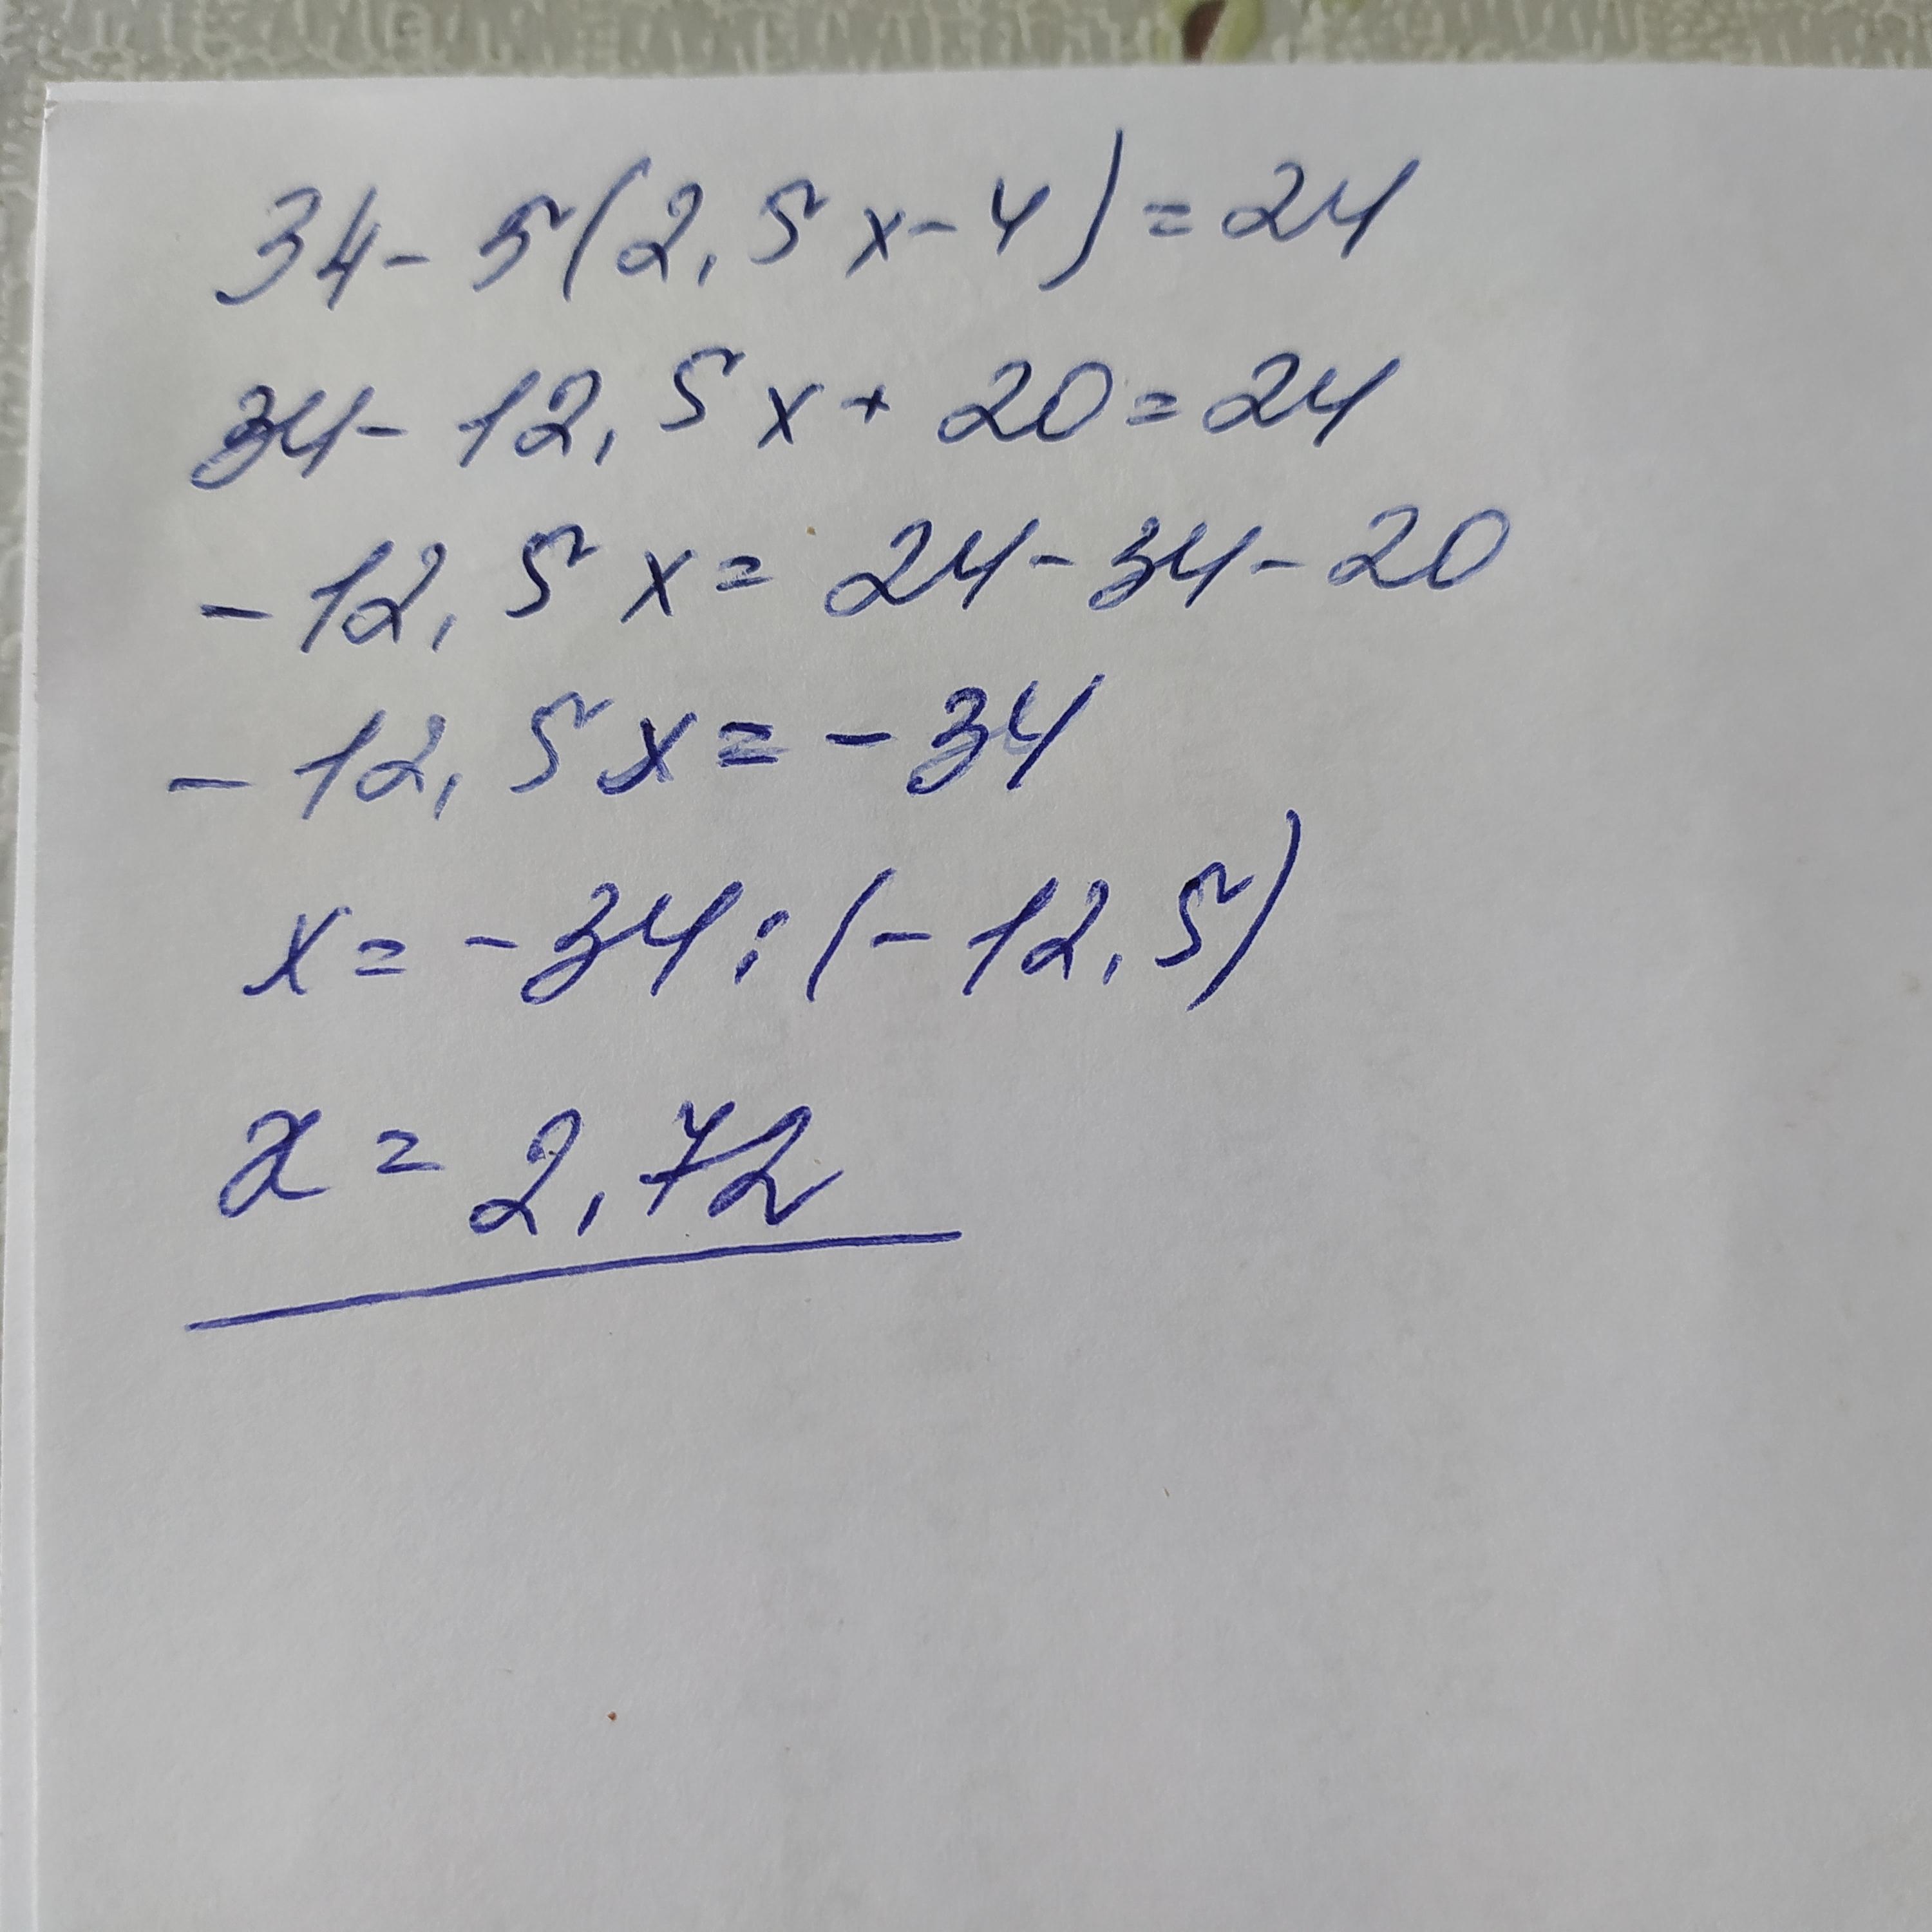 34 - 5(2,5x - 4) = 24
34 - 12,5x + 20 = 24
- 12,5x = 24 - 34 - 20
- 12,5x = - 34
x = - 34 : (- 12,5)
x = 2,72